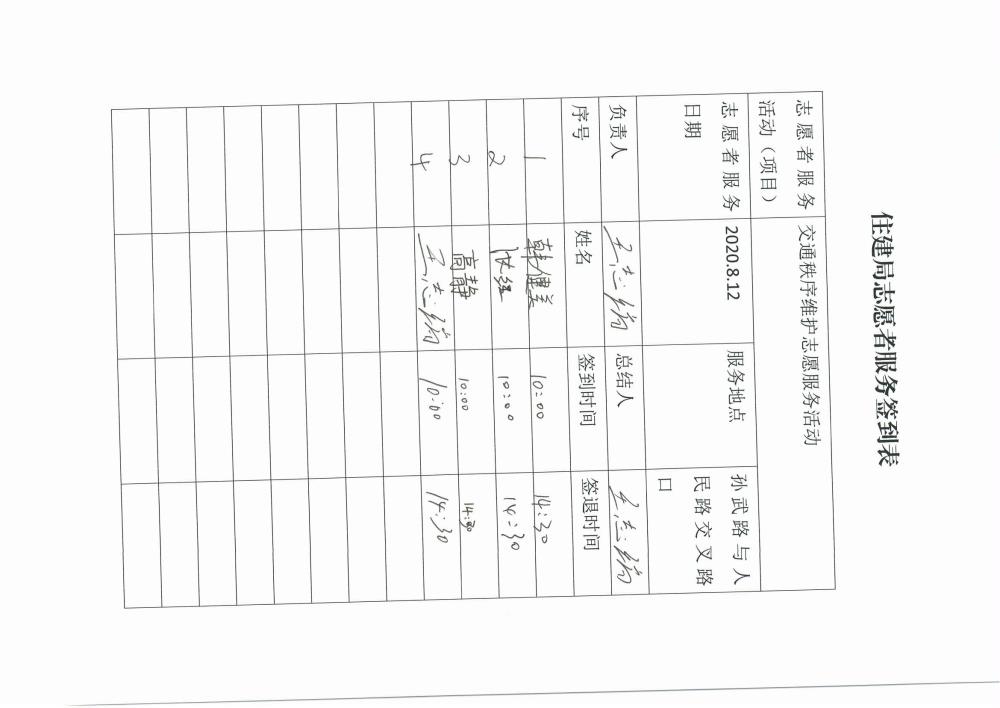 住建局志愿者服务签到表
志愿者服务活动（项目） 交通秩序维护志愿服务活动
志愿者服务日期 2020.8.12 服务地点 孙武路与人民路交叉路口
负责人 王志 总结人 王志
序号 姓名 签到时间 签退时间
1 韩健美 10:00 14:30
2 10:00 14:30
3 高静 10:00 14:30
4 王志 10:00 14:30